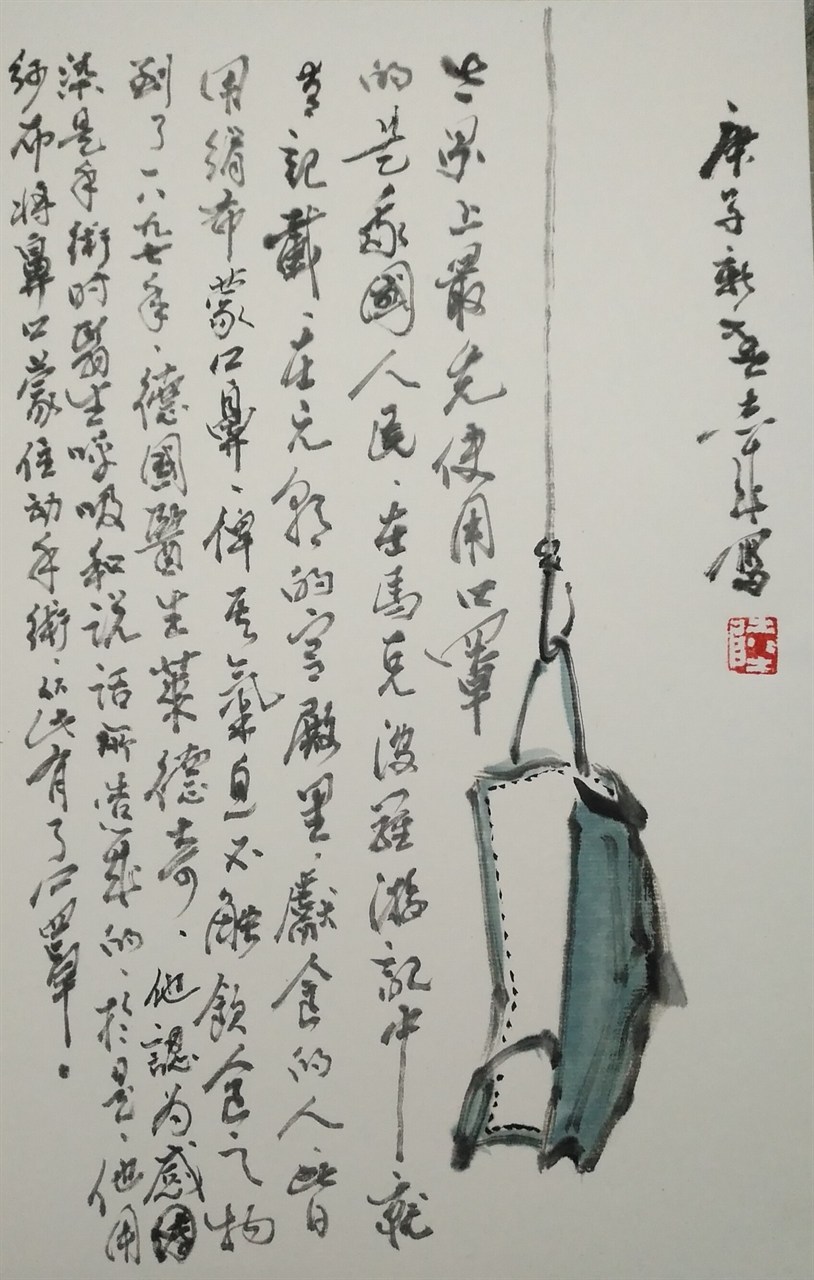 庚子新春志寫
世界上最先使用口罩
的是我國人民、在馬克波羅游記中就
有記載、在元朝的宮殿里、獻食的人皆
用絹布蒙口鼻、俾其氣息不触飲食之物
到了一八九七年、德國醫生萊德奇、他認为感
染是手術时醫生呼吸和说话所造成的、於是、他用
纱布将鼻口蒙住动手術、从此有了口罩。